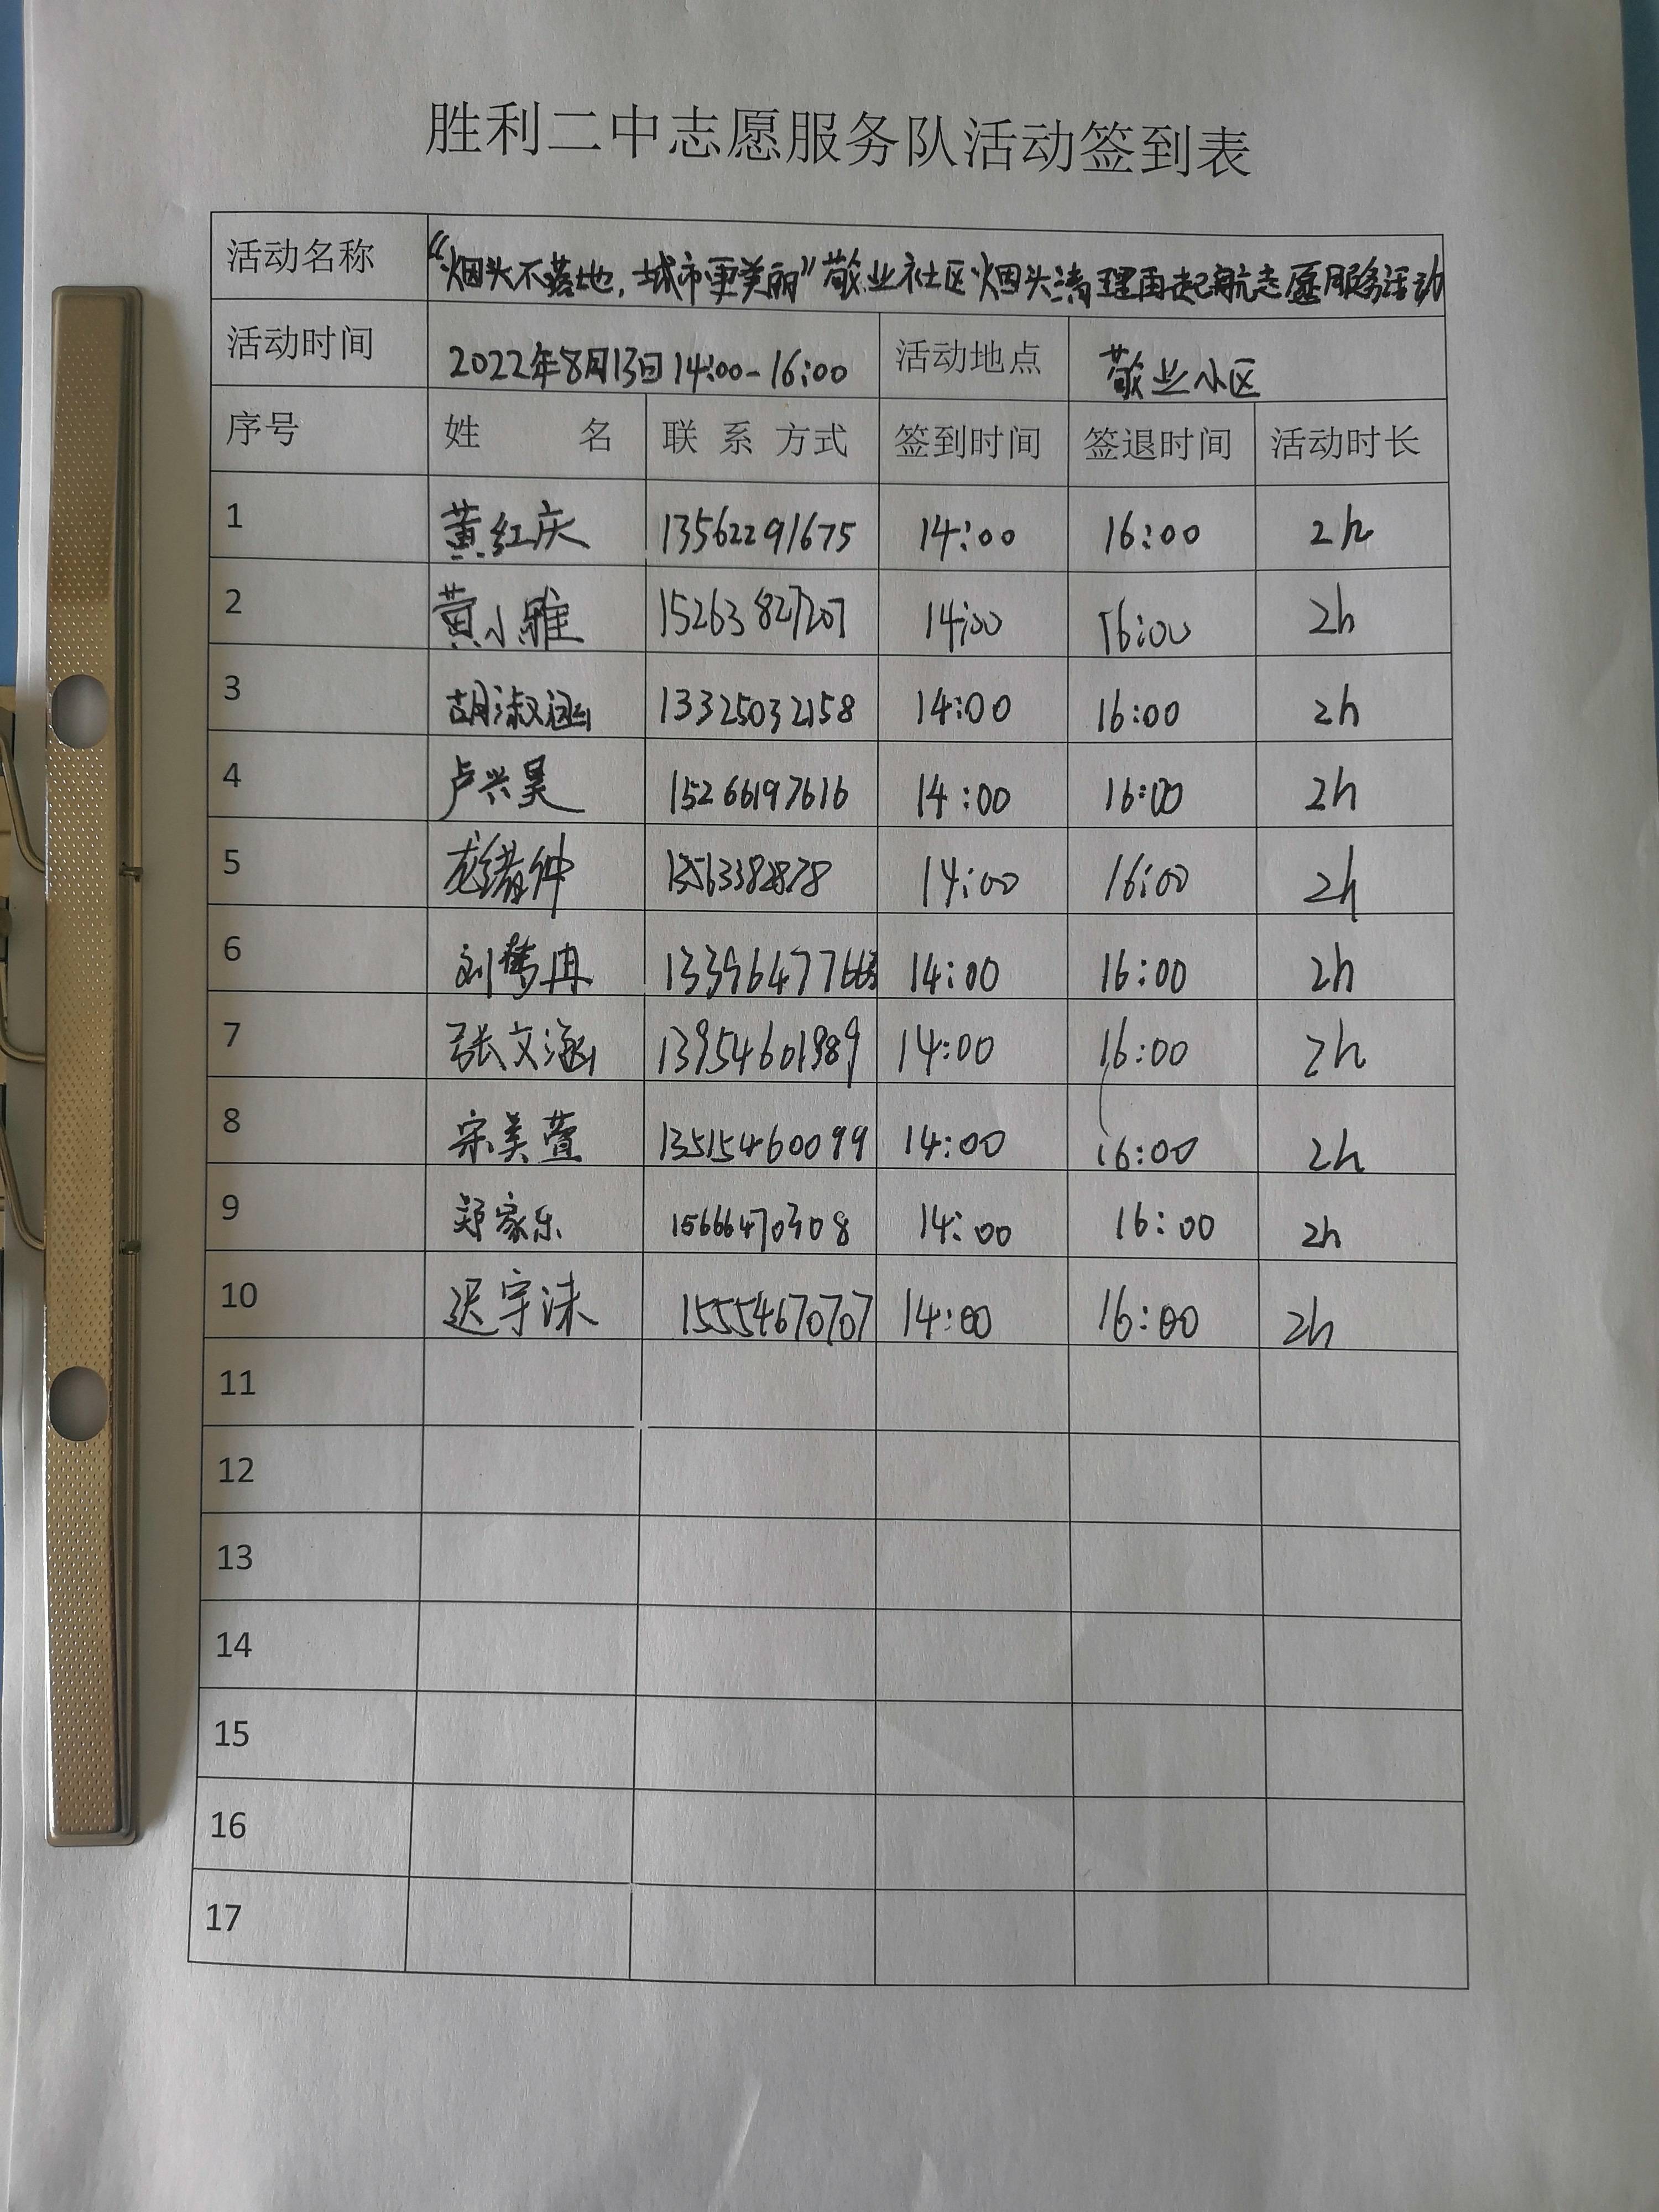 胜利二中志愿服务队活动签到表
活动名称 “烟头不落地，城市更美丽”敬业社区烟头清理再起航志愿服务活动
活动时间 2022年8月13日14:00-16:00 活动地点 敬业小区
序号 姓 名 联 系 方式 签到时间 签退时间 活动时长
1 黄红庆 13562291675 14:00 16:00 2h
2 黄小雅 15263827207 14:00 16:00 2h
3 胡淑涵 13325032158 14:00 16:00 2h
4 卢兴昊 15266197616 14:00 16:00 2h
5 14:00 16:00 2h
6 刘梦冉 14:00 16:00 2h
7 张文涵 13954601989 14:00 16:00 2h
8 宗美萱 13515460099 14:00 16:00 2h
9 郑家乐 15666470308 14:00 16:00 2h
10 迟宇沫 15554670707 14:00 16:00 2h
11
12
13
14
15
16
17